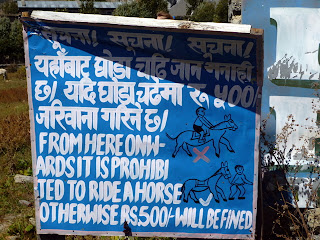 सूचना! सूचना! सूचना!
यहाँबाट घोडा चढि जान मनाही
छ। यदि घोडा चढेमा रू ५००/-
जरिवाना गरिने छ।
FROM HERE ONW-
ARDS IT IS PROHIBI
TED TO RIDE A HORSE
OTHERWISE RS.500/- WILL BE FINED